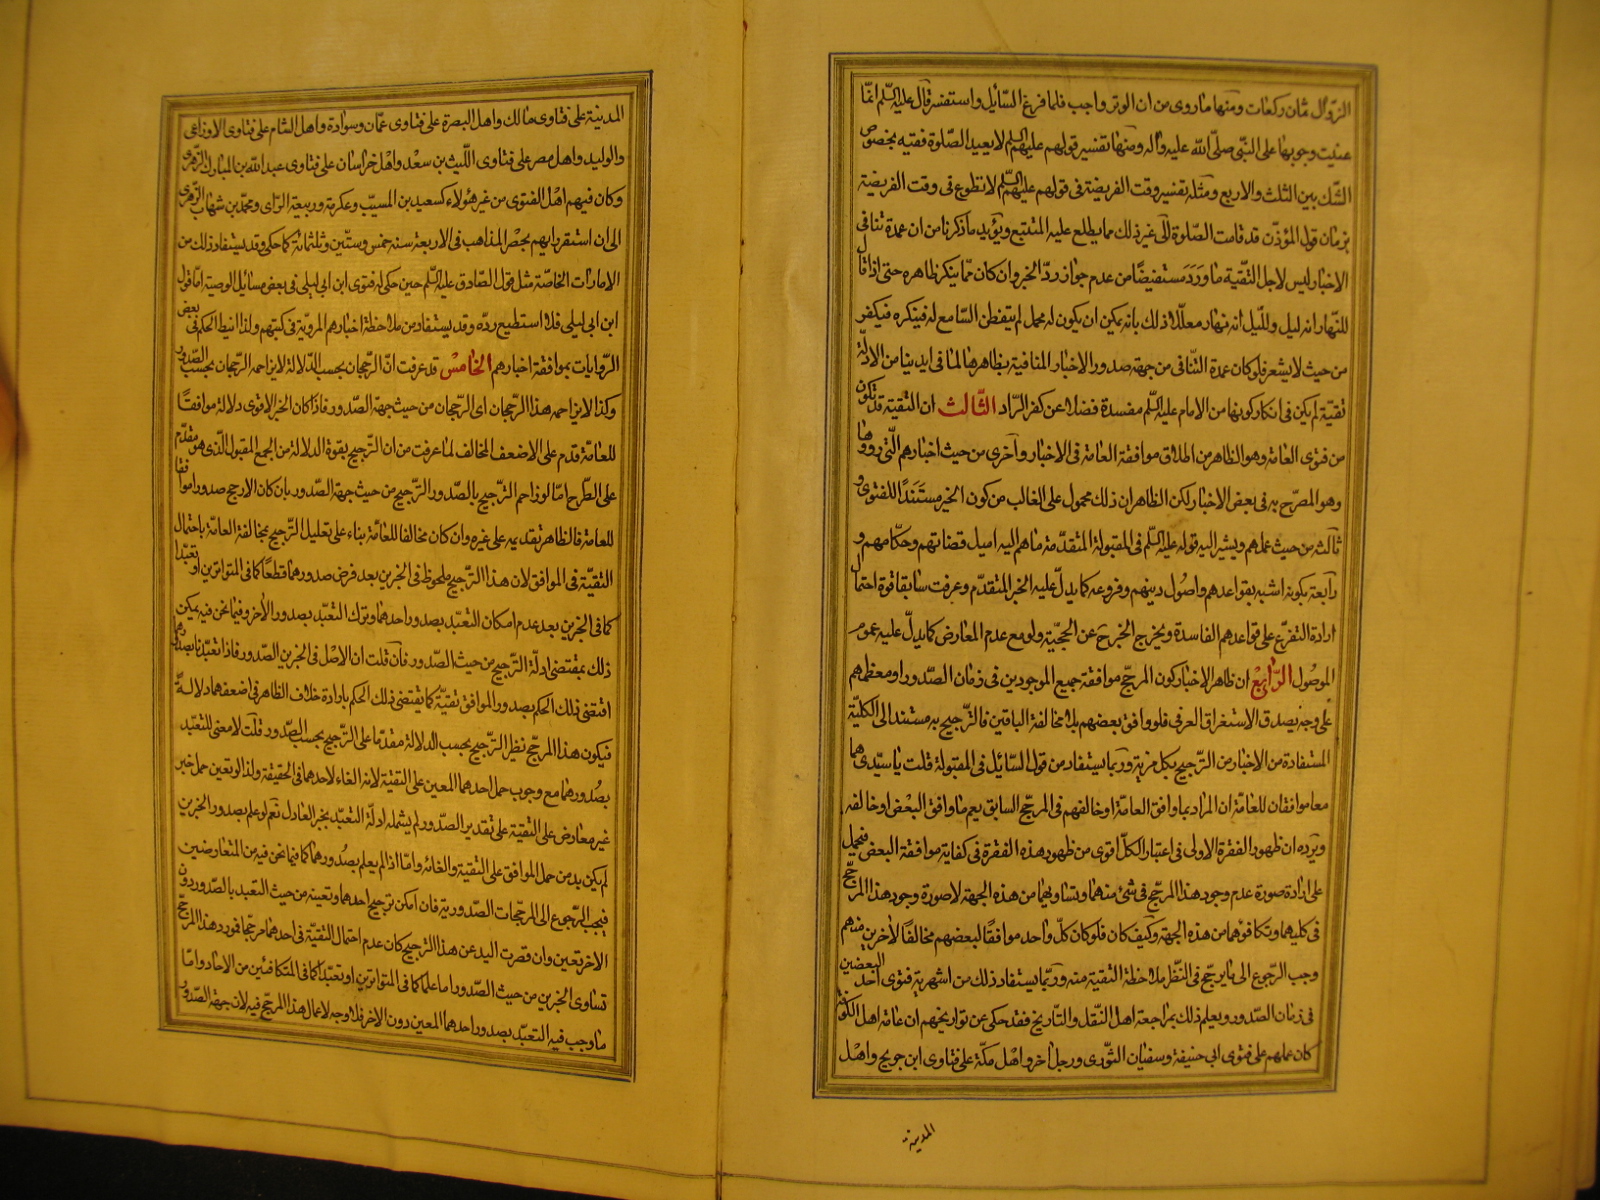 الزوال ثمان ركعات ومنها ما روى من ان الوتر واجب فلما فرغ السائل واستفسر قال عليه السلم انما
عنيت وجوبها على النبى صلى الله عليه واله ومنها تفسير قولهم عليهم السلم لا يعيد الصلوة فقيه بخصوص
الشك بين الثلث والاربع ومثله تفسير وقت الفريضة فى قولهم عليهم السلم لا تطوع فى وقت الفريضة
بزمان قول المؤذن قد قامت الصلوة الى غير ذلك مما يطلع عليه المتتبع ويؤيد ما ذكرنا من ان عمدة تنافى
الاخبار ليس لاجل التقية ما ورد مستفيضا من عدم جواز رد الخبر وان كان مما ينكر ظاهره حتى اذا قال
للنهار انه ليل ولليل انه نهار معللا ذلك بانه يمكن ان يكون له محمل لم يتفطن السامع له فينكره فيكفر
من حيث لا يشعر فلو كان عمدة التنافى من جهة صدور الاخبار المنافية بظاهرها لما فى ايدينا من الادلة
تقية لم يكن فى انكار كونها من الامام عليه السلم مفسدة فضلا عن كفر الراد الثالث ان التقية قد تكون
من فتوى العامة وهو الظاهر من اطلاق موافقة العامة فى الاخبار واخرى من حيث اخبارهم التى رووها
وهو المصرح به فى بعض الاخبار لكن الظاهر ان ذلك محمول على الغالب من كون الخبر مستندا للفتوى و
ثالثة من حيث عملهم ويشير اليه قوله عليه السلم فى المقبولة المتقدمة ما هم اليه اميل قضاتهم وحكامهم و
رابعة بكونه اشبه بقواعدهم واصول دينهم وفروعه كما يدل عليه الخبر المتقدم وعرفت سابقا قوة احتمال
ارادة التفرع على قواعدهم الفاسدة ويخرج الخبر ح عن الحجية ولو مع عدم المعارض كما يدل عليه عموم
الموصول الرابع ان ظاهر الاخبار كون المرجح موافقة جميع الموجودين فى زمان الصدور او معظمهم
على وجه يصدق الاستغراق العرفى فلو وافق بعضهم بلا مخالفة الباقين فالترجيح به مستند الى الكلية
المستفادة من الاخبار من الترجيح بكل مزية وربما يستفاد من قول السائل فى المقبولة قلت يا سيدى هما
معا موافقان للعامة ان المراد بما وافق العامة او خالفهم فى المرجح السابق يعم ما وافق البعض او خالفه
ويرده ان ظهور الفقرة الاولى فى اعتبار الكل اقوى من ظهور هذه الفقرة فى كفاية موافقة البعض فيحمل
على ارادة صورة عدم وجود هذا المرجح فى شئ منهما وتساويهما من هذه الجهة لا صورة وجود هذا المرجح
فى كليهما وتكافؤهما من هذه الجهة وكيف كان فلو كان كل واحد موافقا لبعضهم مخالفا لآخرين منهم
وجب الرجوع الى ما يرجح فى النظر ملاحظة التقية منه وربما يستفاد ذلك من اشهرية فتوى احد البعضين
فى زمان الصدور ويعلم ذلك بمراجعة اهل النقل والتاريخ فقد حكى عن تواريخهم ان عامة اهل الكوفة
كان عملهم على فتوى ابى حنيفة وسفيان الثورى ورجل اخر واهل مكة على فتاوى ابن جريج واهل
المدينة
المدينة على فتاوى مالك واهل البصرة على فتاوى عمان وسوادة واهل الشام على فتاوى الاوزاعى
والوليد واهل مصر على فتاوى الليث بن سعد واهل خراسان على فتاوى عبد الله بن المبارك الزهرى
وكان فيهم اهل الفتوى من غير هؤلاء كسعيد بن المسيب وعكرمة وربيعة الراى ومحمد بن شهاب الزهرى
الى ان استقر رايهم بحصر المذاهب فى الاربعة سنه خمس وستين وثلثمائة كما حكى وقد يستفاد ذلك من
الامارات الخاصة مثل قول الصادق عليه السلم حين حكى له فتوى ابن ابى ليلى فى بعض مسائل الوصية اما قول
ابن ابى ليلى فلا استطيع رده وقد يستفاد من ملاحظة اخبارهم المروية فى كتبهم ولذا انيط الحكم فى بعض
الروايات بموافقة اخبارهم الخامس قد عرفت ان الرجحان بحسب الدلالة لا يزاحمه الرجحان بحسب الصدور
وكذا لا يزاحمه هذا الرجحان اى الرجحان من حيث جهة الصدور فاذا كان الخبر الاقوى دلالة موافقا
للعامة قدم على الاضعف المخالف لما عرفت من ان الترجيح بقوة الدلالة من الجمع المقبول الذى هو مقدم
على الطرح اما لو زاحم الترجيح بالصدور الترجيح من حيث جهة الصدور بان كان الارجح صدورا موافقا
للعامة فالظاهر تقديمه على غيره وان كان مخالفا للعامة بناء على تعليل الترجيح بمخالفة العامة باحتمال
التقية فى الموافق لان هذا الترجيح ملحوظ فى الخبرين بعد فرض صدورهما قطعا كما فى المتواترين او تعبدا
كما فى الخبرين بعد عدم امكان التعبد بصدور احدهما وترك التعبد بصدور الاخر وفيما نحن فيه يمكن
ذلك بمقتضى ادلة الترجيح من حيث الصدور فان قلت ان الاصل فى الخبرين الصدور فاذا تعبدنا بصدورهما
اقتضى ذلك الحكم بصدور الموافق تقية كما يقتضى ذلك الحكم بارادة خلاف الظاهر فى اضعفهما دلالة
فيكون هذا المرجح نظير الترجيح بحسب الدلالة مقدما على الترجيح بحسب الصدور قلت لا معنى للتعبد
بصدورهما مع وجوب حمل احدهما المعين على التقية لانه الغاء لاحدهما فى الحقيقة ولذا لو تعين حمل خبر
غير معارض على التقية على تقدير الصدور لم يشمله ادلة التعبد بخبر العادل نعم لو علم بصدور الخبرين
لم يكن بد من حمل الموافق على التقية والغائه واما اذا لم يعلم بصدورهما كما فيما نحن فيه من المتعارضين
فيجب الرجوع الى المرجحات الصدورية فان امكن ترجيح احدهما وتعينه من حيث التعبد بالصدور دون
الاخر تعين وان قصرت اليد عن هذا الترجيح كان عدم احتمال التقية فى احدهما مرجحا فمورد هذا المرجح
تساوى الخبرين من حيث الصدور اما علما كما فى المتواترين او تعبدا كما فى المتكافئين من الاحاد واما
ما وجب فيه التعبد بصدور احدهما المعين دون الاخر فلا وجه لاعمال هذا المرجح فيه لان جهة الصدور